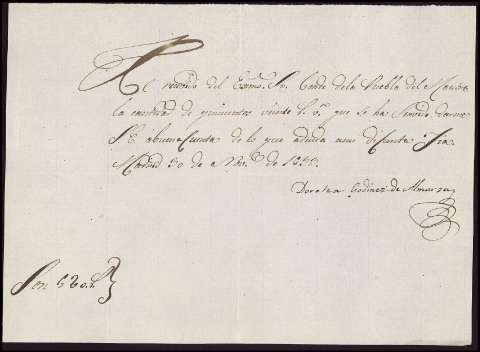 He recivido del Exmo. Sr. Conde de la Puebla del Maestre
la cantidad de quinientos veinte r.s v.n que se ha servido darme
S.E. a buena Cuenta de lo que adeuda a mi difunta
Madrid 30 de Nov.e de
Dorotea Godinez de Almanza
Son 520 r.s